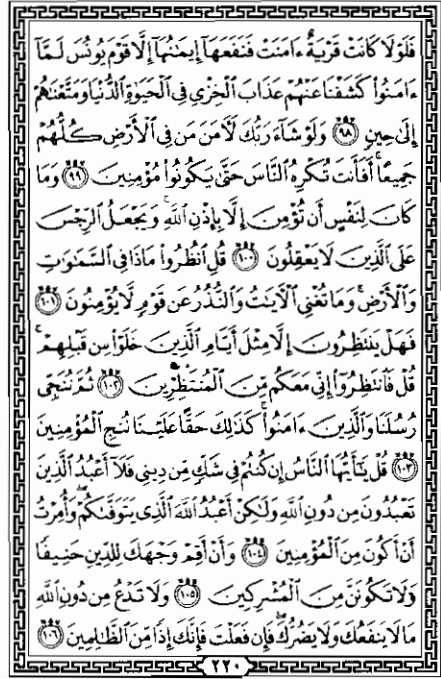 فَلَوْلَا كَانَتْ قَرْيَةٌ ءَامَنَتْ فَنَفَعَهَا إِيمَٰنُهَا إِلَّا قَوْمَ يُونُسَ لَمَّآ
ءَامَنُوا۟ كَشَفْنَا عَنْهُمْ عَذَابَ الْخِزْيِ فِي الْحَيَوٰةِ الدُّنْيَا وَمَتَّعْنَٰهُمْ
إِلَىٰ حِينٍ ٩٨ وَلَوْ شَآءَ رَبُّكَ لَـَٔامَنَ مَن فِي الْأَرْضِ كُلُّهُمْ
جَمِيعًا ۚ أَفَأَنتَ تُكْرِهُ النَّاسَ حَتَّىٰ يَكُونُوا۟ مُؤْمِنِينَ ٩٩ وَمَا
كَانَ لِنَفْسٍ أَن تُؤْمِنَ إِلَّا بِإِذْنِ اللَّهِ ۚ وَيَجْعَلُ الرِّجْسَ
عَلَى الَّذِينَ لَا يَعْقِلُونَ ١٠٠ قُلِ انظُرُوا۟ مَاذَا فِي السَّمَٰوَٰتِ
وَالْأَرْضِ ۚ وَمَا تُغْنِي الْـَٔايَٰتُ وَالنُّذُرُ عَن قَوْمٍ لَّا يُؤْمِنُونَ ١٠١
فَهَلْ يَنتَظِرُونَ إِلَّا مِثْلَ أَيَّامِ الَّذِينَ خَلَوْا۟ مِن قَبْلِهِمْ ۚ
قُلْ فَانتَظِرُوٓا۟ إِنِّي مَعَكُم مِّنَ الْمُنتَظِرِينَ ١٠٢ ثُمَّ نُنَجِّي
رُسُلَنَا وَالَّذِينَ ءَامَنُوا۟ ۚ كَذَٰلِكَ حَقًّا عَلَيْنَا نُنجِ الْمُؤْمِنِينَ
١٠٣ قُلْ يَٰٓأَيُّهَا النَّاسُ إِن كُنتُمْ فِي شَكٍّ مِّن دِينِي فَلَآ أَعْبُدُ الَّذِينَ
تَعْبُدُونَ مِن دُونِ اللَّهِ وَلَٰكِنْ أَعْبُدُ اللَّهَ الَّذِي يَتَوَفَّىٰكُمْ ۖ وَأُمِرْتُ
أَنْ أَكُونَ مِنَ الْمُؤْمِنِينَ ١٠٤ وَأَنْ أَقِمْ وَجْهَكَ لِلدِّينِ حَنِيفًا
وَلَا تَكُونَنَّ مِنَ الْمُشْرِكِينَ ١٠٥ وَلَا تَدْعُ مِن دُونِ اللَّهِ
مَا لَا يَنفَعُكَ وَلَا يَضُرُّكَ ۖ فَإِن فَعَلْتَ فَإِنَّكَ إِذًا مِّنَ الظَّٰلِمِينَ ١٠٦
٢٢٠